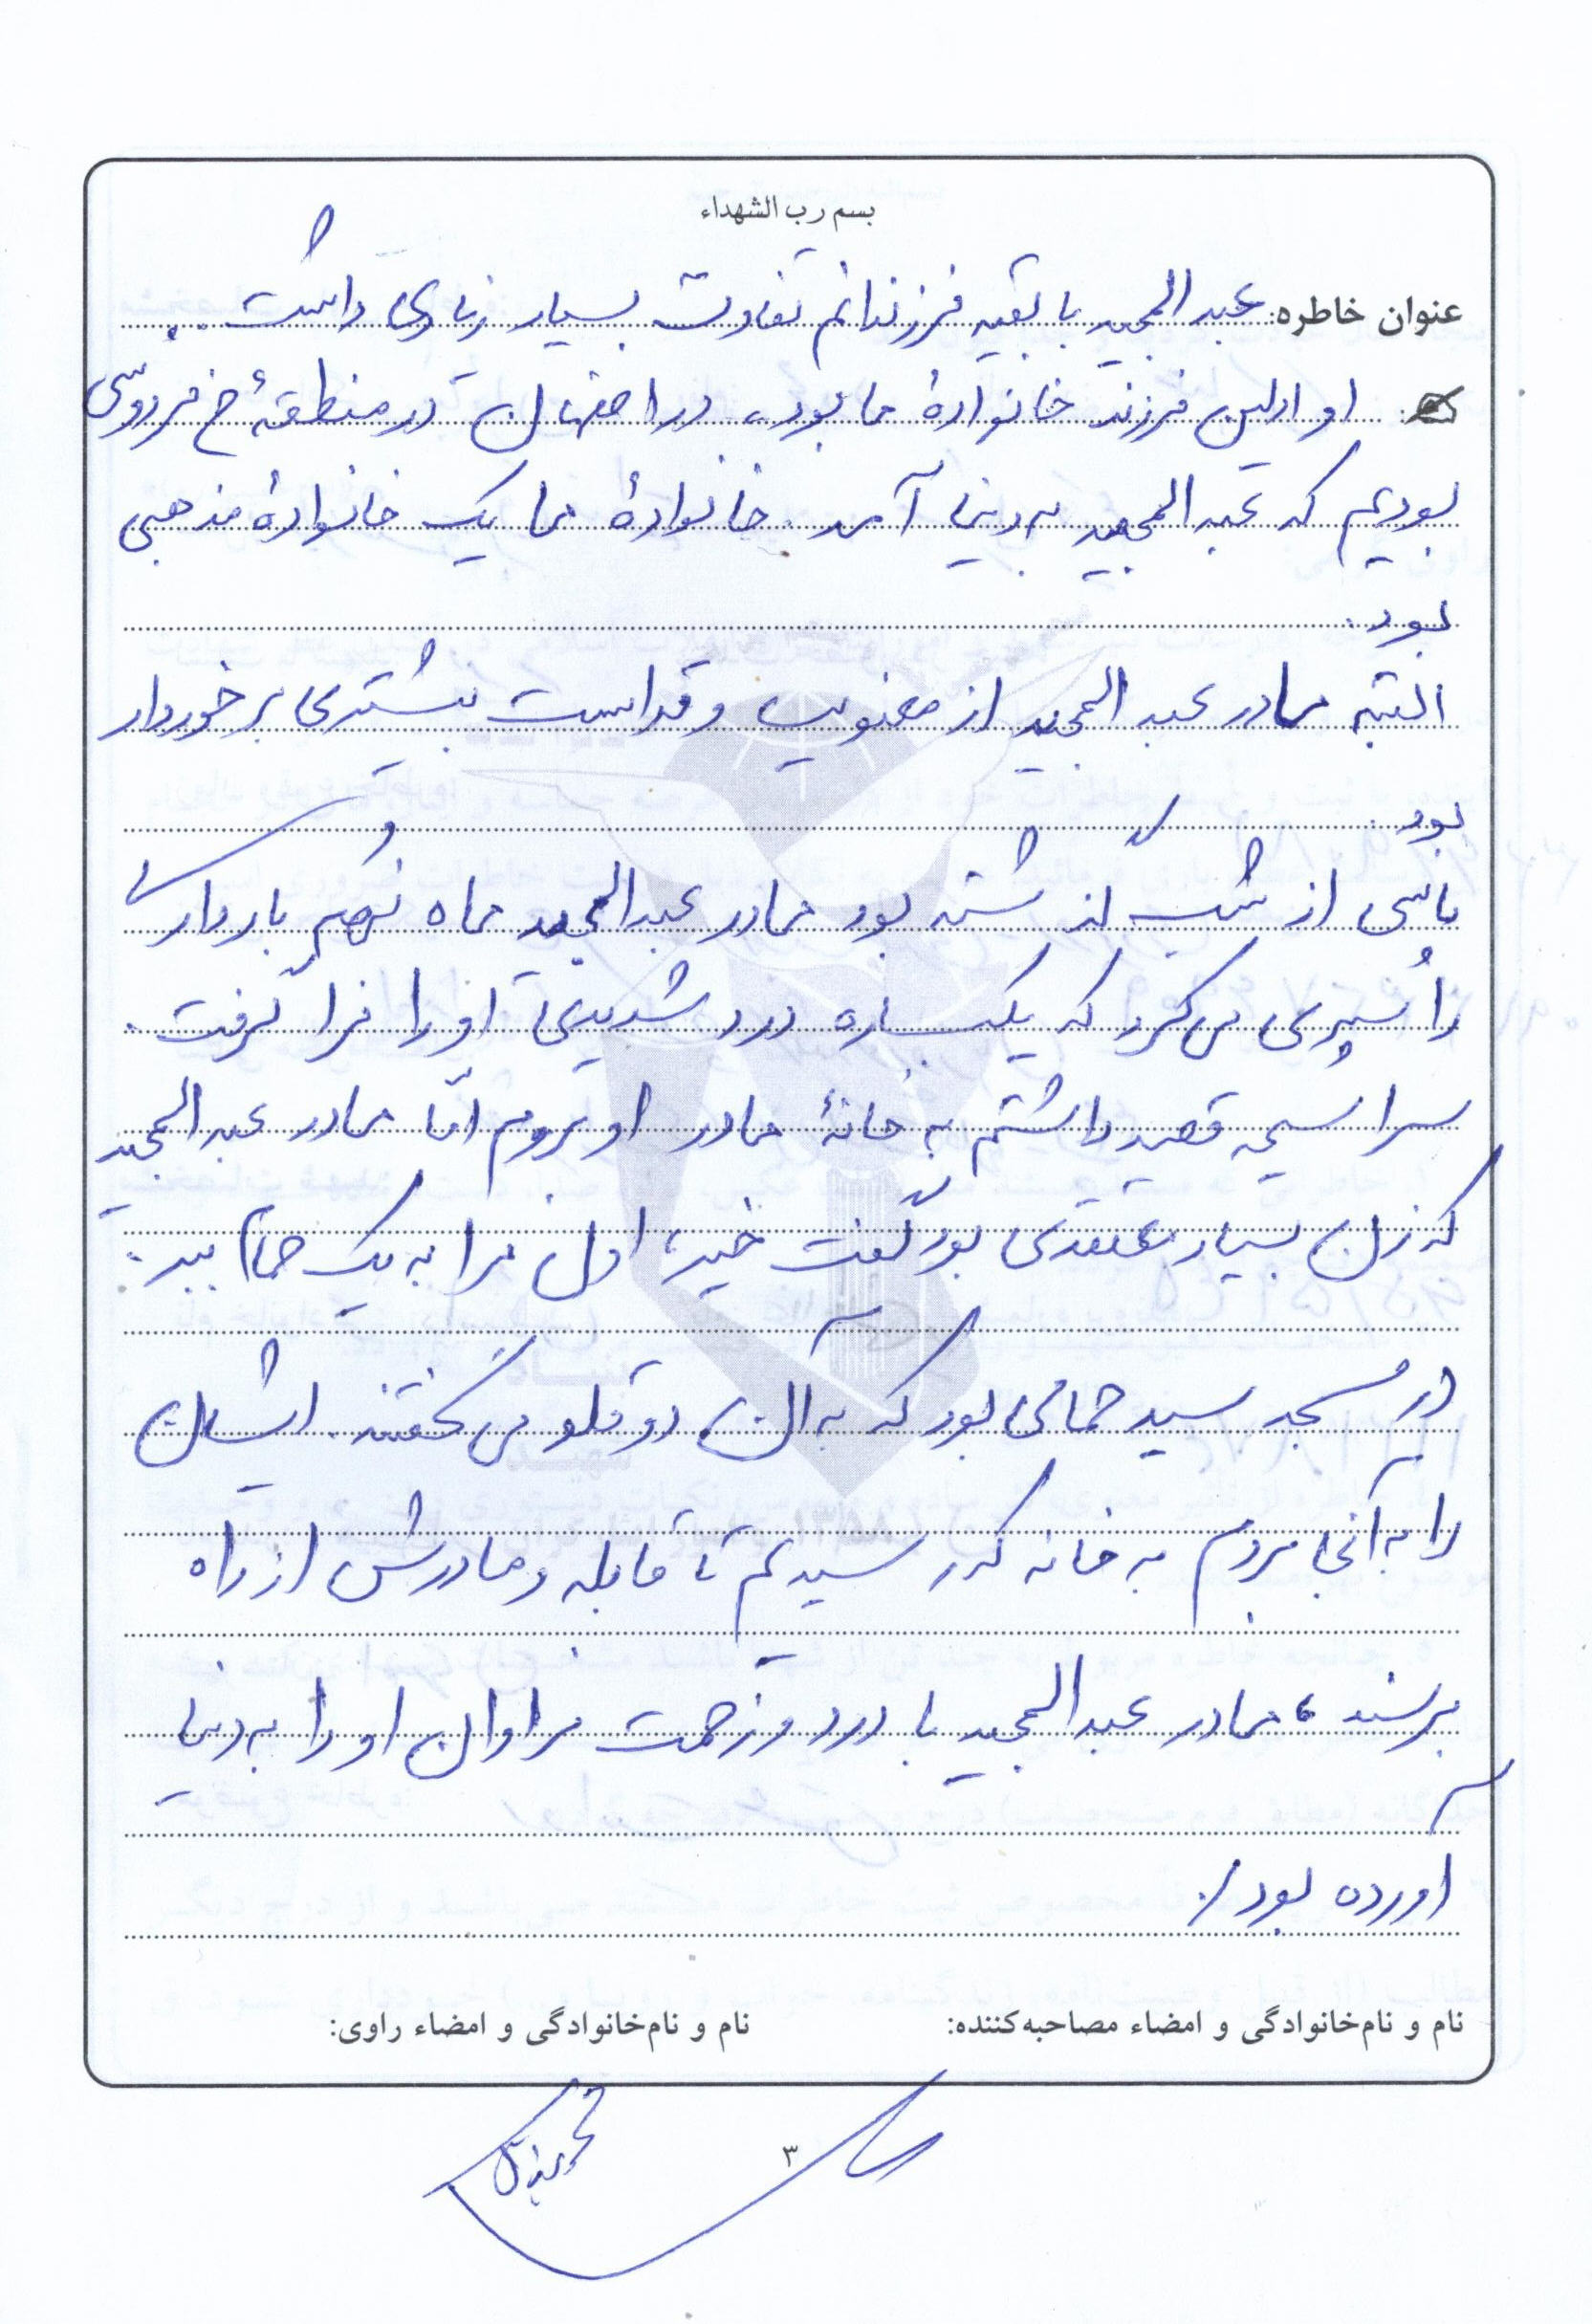 بسم رب الشهداء
عنوان خاطره: عبدالمجید با بقیه فرزندانم تفاوت بسیار زیادی داشت.
او اولین فرزند خانوادهٔ ما بود، در اصفهان در منطقهٔ خ فردوسی
بودیم که عبدالمجید به دنیا آمد. خانوادهٔ ما یک خانوادهٔ مذهبی
بود.
البته مادر عبدالمجید از معنویت و قداست بیشتری برخوردار
بود.
پاسی از شب گذشته بود مادر عبدالمجید ماه نهم بارداری
را سپری می کرد که یکباره درد شدیدی او را فرا گرفت.
سراسیمه قصد داشتم به خانهٔ مادر او بروم امّا مادر عبدالمجید
که زن بسیار معتقدی بود گفت خیر، اول مرا به یک حمام ببر.
در مسجد سید حمامی بود که به آن دوقلو می گفتند. ایشان
را به آنجا بردم به خانه که رسیدیم تا قابله و مادرش از راه
برسند، مادر عبدالمجید با درد و زحمت فراوان او را به دنیا
آورده بود/.
نام و نام‌خانوادگی و امضاء مصاحبه‌کننده:
نام و نام‌خانوادگی و امضاء راوی:
۳